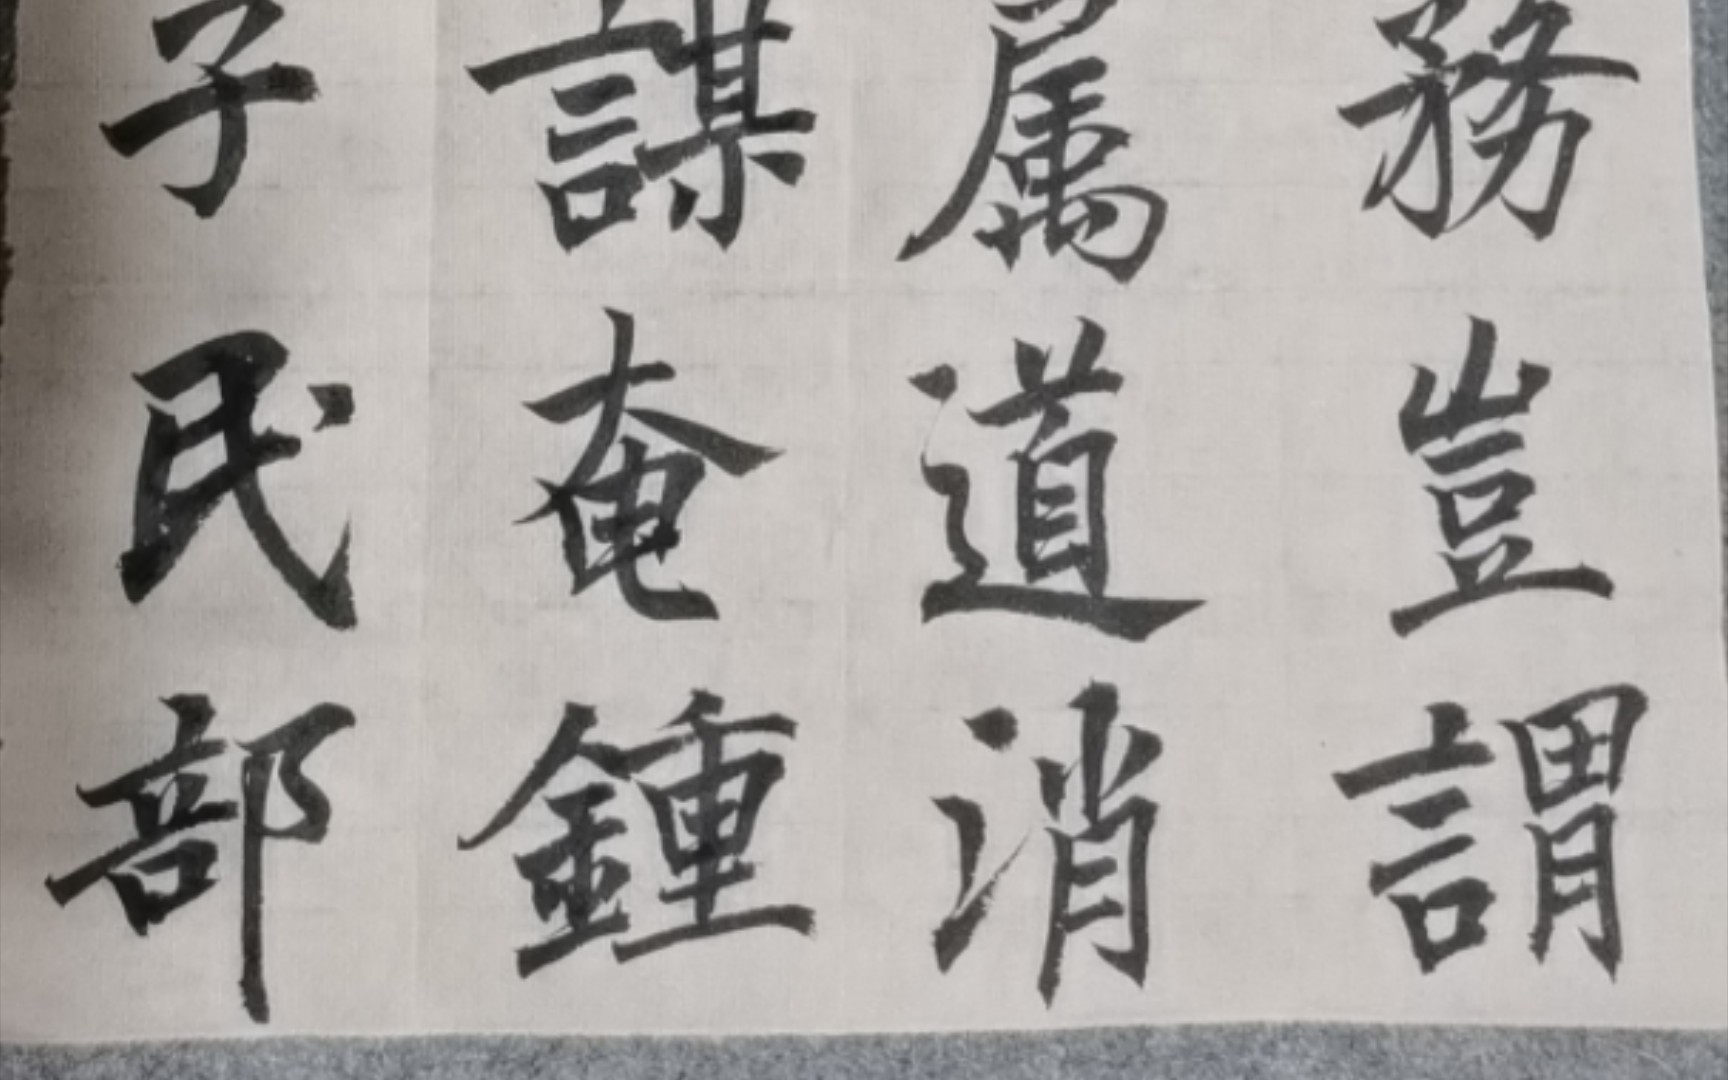 務豈謂
属道消
謀奄鍾
子民部